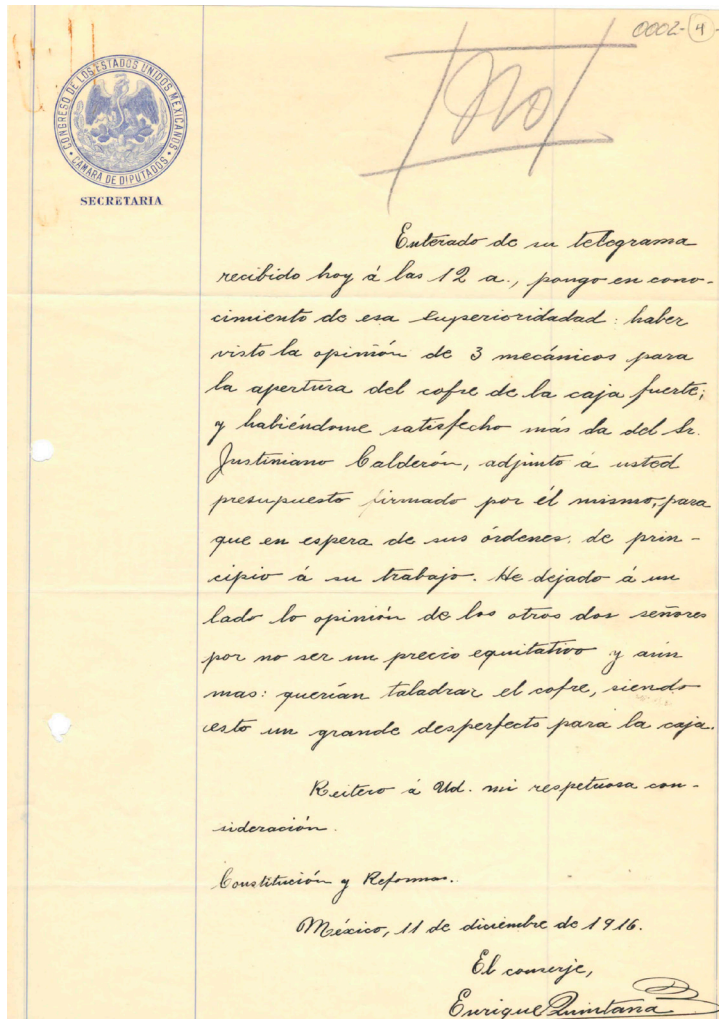 0002-4-
no
CONGRESO DE LOS ESTADOS UNIDOS MEXICANOS
• CAMARA DE DIPUTADOS •
SECRETARIA
Enterado de su telegrama
recibido hoy á las 12 a., pongo en cono-
cimiento de esa Superioridadad: haber
visto la opinión de 3 mecánicos para
la apertura del cofre de la caja fuerte;
y habiéndome satisfecho más da del Sr.
Justiniano Calderón, adjunto á usted
presupuesto firmado por él mismo, para
que en espera de sus órdenes, de prin-
cipio á su trabajo. He dejado á un
lado lo opinión de los otros dos señores
por no ser un precio equitativo y aún
mas: querían taladrar el cofre, siendo
esto un grande desperfecto para la caja.
Reitero á Ud. mi respetuosa con-
sideración.
Constitución y Reformas.
México, 11 de diciembre de 1916.
El conserje,
Enrique Quintana